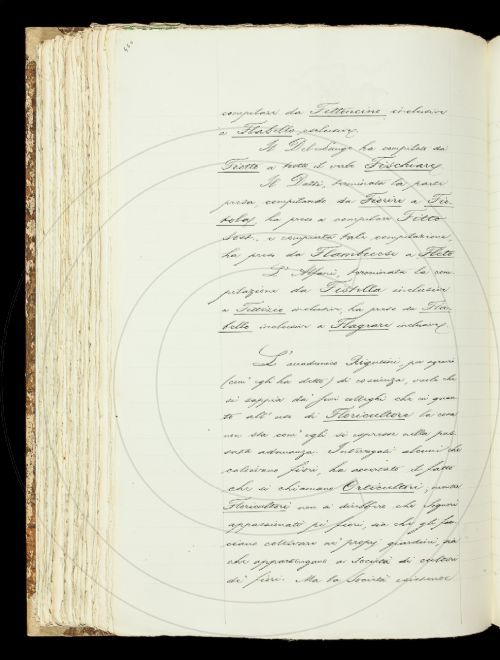 compilare da Fettuccine inclusive
a Flabello, esclusive.
Il Del-Lungo ha compilato da
Fiotto a tutto il verbo Fischiare.
Il Dotti, terminata la parte
presa, compilando da Fiorire a
ha preso a compilare Fitto
Sost., e compiuta tale compilazione,
ha preso da a Flito
L'Alfani, terminata la com-
pilazione da Fistella inclusive
a inclusive, ha preso da Fla-
bello inclusive a Flagrare inclusive.
L'accademico Rigutini, per sgravio
(com'egli ha detto) di coscienza, vuole che
si sappia da' suoi colleghi che in quan-
to all'uso di Floricultore la cosa
non sta com'egli si espresse nella pas-
sata adunanza. Interrogati alcuni che
coltivano fiori, ha accertato il fatto
che si chiamano Orticultori, mentre
Floricultori non si direbbe che Signori
appassionati pe' fiori, sia che gli fac-
ciano coltivare ne' propri giardini, sia
che appartengano a Società di cultori
di fiori. Ma la Società esistente